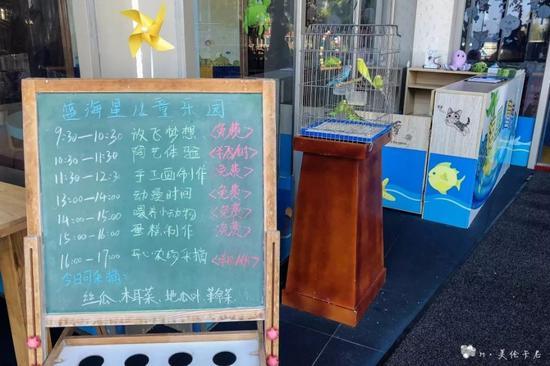 蓝海星儿童乐园
9:30—10:30 放飞梦想 <免费>
10:30—11:30 陶艺体验
11:30—12:30 手工画制作 <免费>
13:00—14:00 动漫时间 <免费>
14:00—15:00 喂养小动物 <免费>
15:00—16:00 蛋糕制作 <免费>
16:00—17:00 开心农场采摘
今日可采摘:
丝瓜、木耳菜、地瓜叶、苋菜
n·美伦卡若